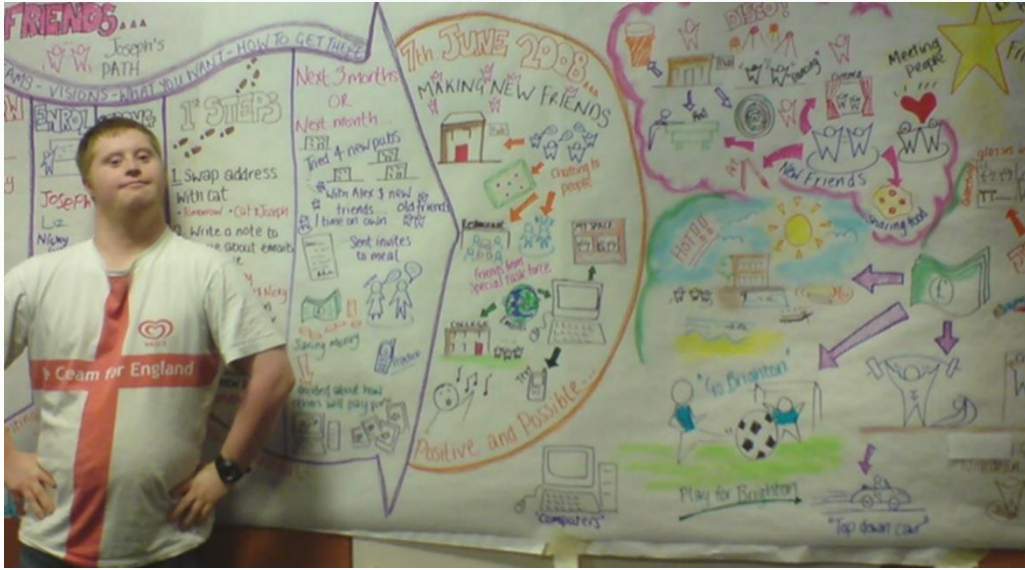 FRIENDS...
Joseph's
PATH
VISIONS - WHAT YOU WANT - HOW TO GET THERE
ENROL
Joseph
Liz
Nicky
1st STEPS
1. Swap address
with Cat
• Tomorrow • Cat & Joseph
2. Write a note to
about emails
Next 3 months
OR
Next month...
Tried 4 new pubs
with Alex & new
friends
old friends
1 time on own
Sent invites
to meal
Saving Money
decided about how
others will play part
7th JUNE 2008...
MAKING NEW FRIENDS
Pub
Chatting to
people
Restaurant
MY SPACE
friends from
special task force
MUSIC
COLLEGE
Text
Positive and Possible...
"Computers"
DISCO!
Pub
"dancing"
Cinema
Pool
New Friends
Meeting
people
sharing food
HOT!!!
£
"Go Brighton"
Play for Brighton
"Top down car"
Cream for England